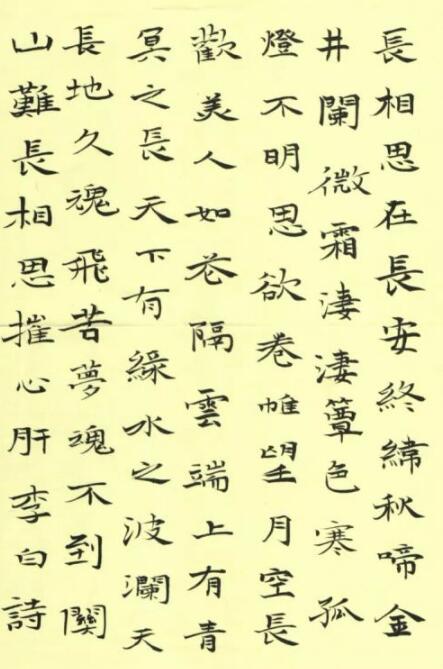 長相思在長安終緯秋啼金
井闌微霜淒淒簟色寒孤
燈不明思欲卷帷望月空長
歡美人如花隔雲端上有青
冥之長天下有綠水之波瀾天
長地久魂飛苦夢魂不到關
山難長相思摧心肝李白詩